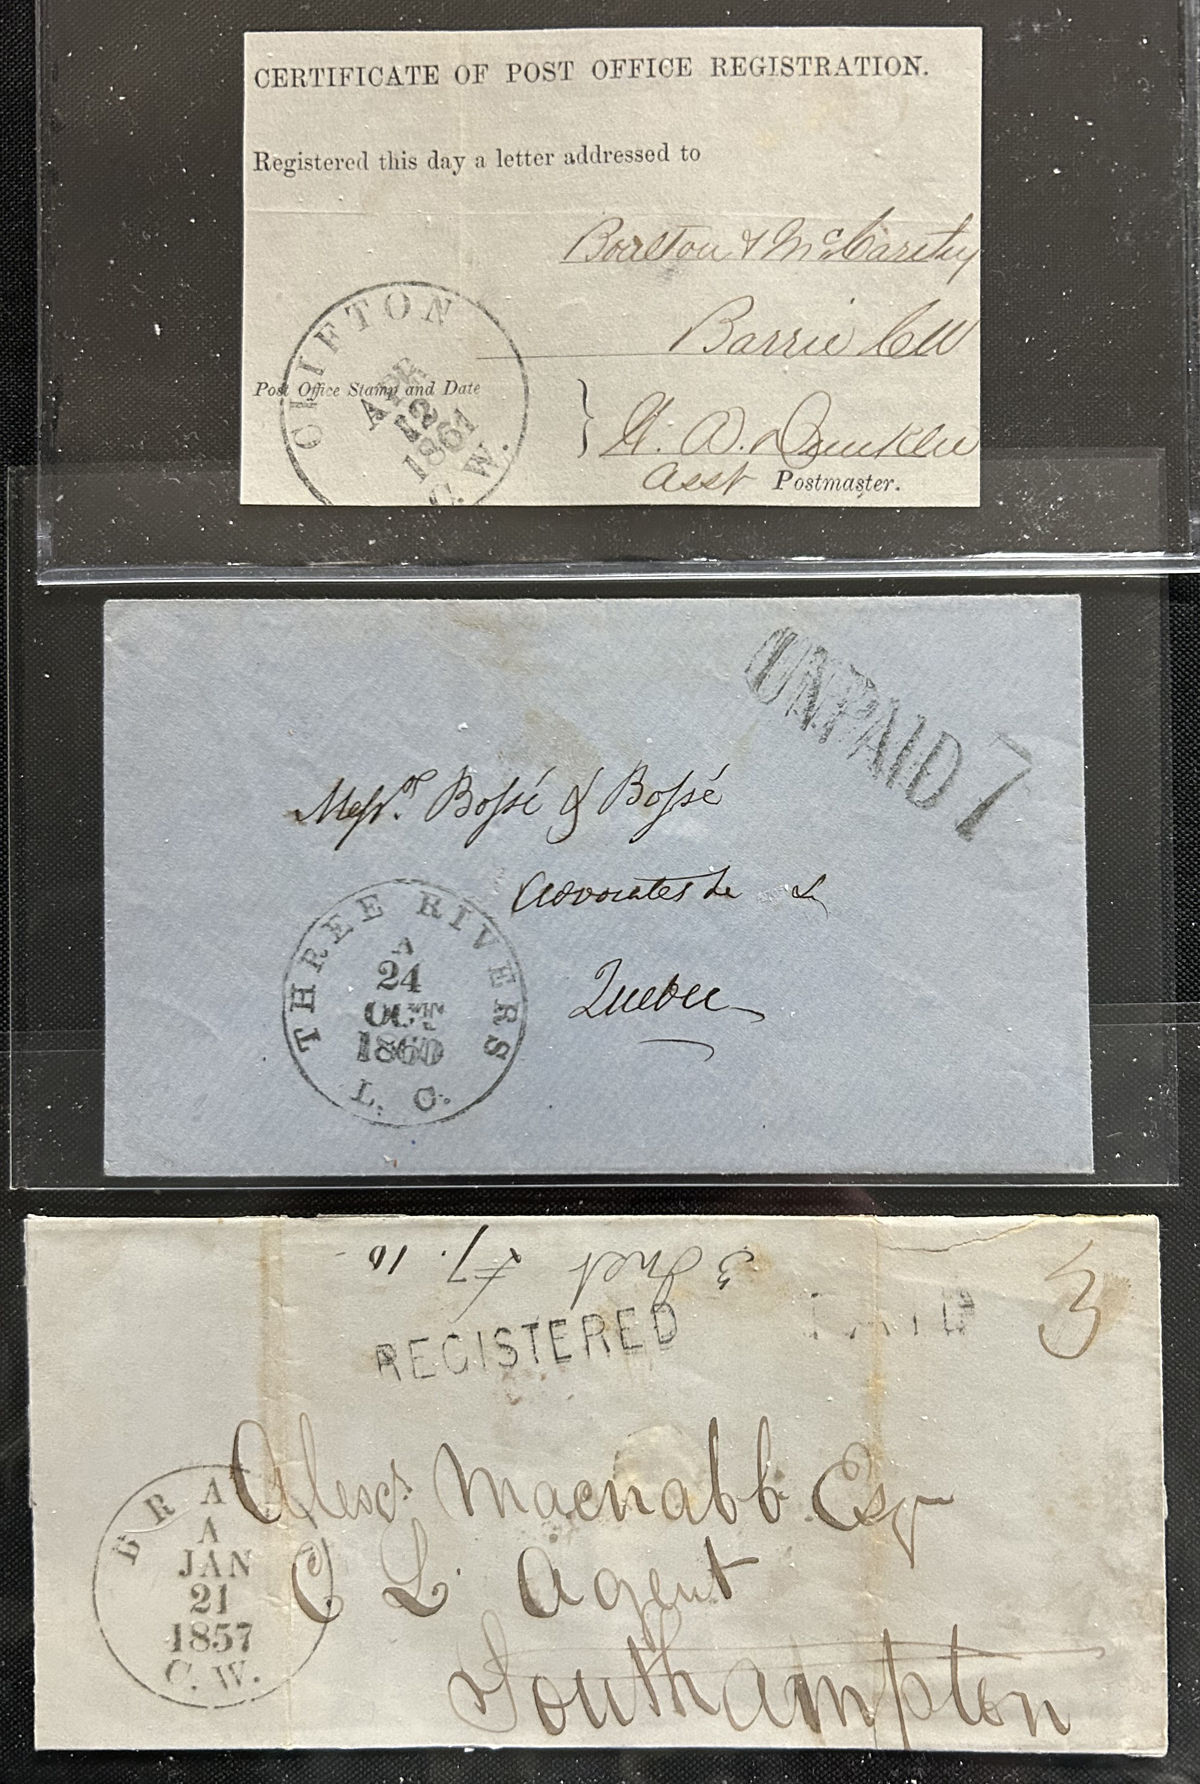 CERTIFICATE OF POST OFFICE REGISTRATION.
Registered this day a letter addressed to
Boulton & McCarthy
Barrie CW
CLIFTON
APR
12
1861
C.W.
Post Office Stamp and Date
Asst Postmaster.
UNPAID 7
Messrs. Bossé & Bossé
Advocates &c &
Quebec
THREE RIVERS
A
24
OCT
1860
L. C.
3 7.10
REGISTERED
PAID
3
Alexr Macnabb Esqr
C L Agent
Southampton
BRA
A
JAN
21
1857
C. W.